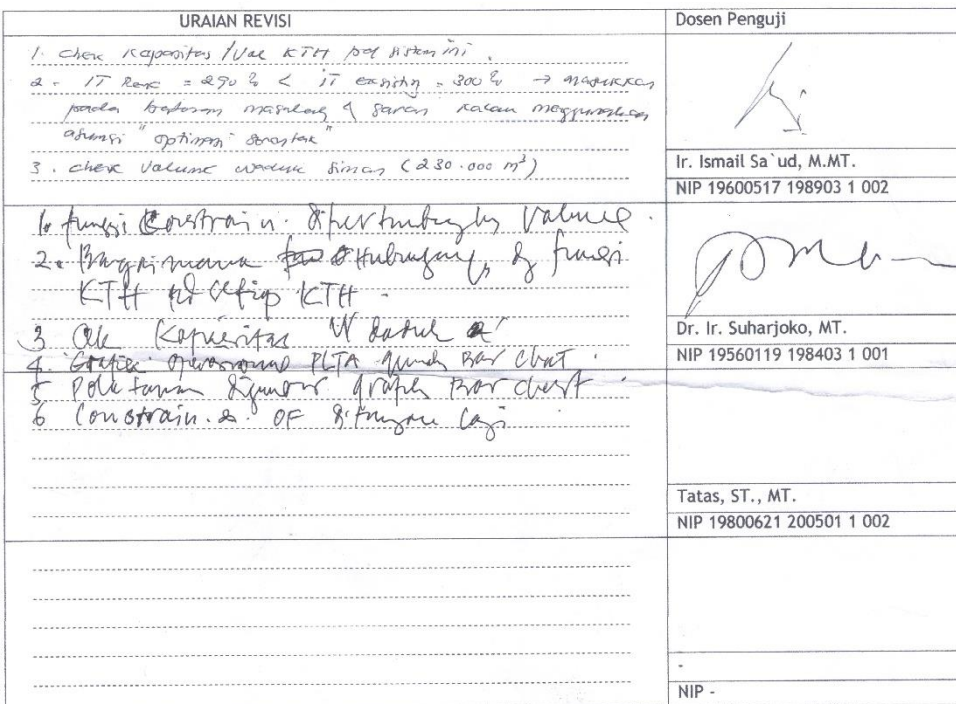 URAIAN REVISI
Dosen Penguji
1. chek Kapasitas / Vol KTH pd sistem ini.
2. IT Renc = 290 % < IT existing = 300 % → masukkan
pada batasan masalah & saran kalau menggunakan
asumsi "optimasi
3. chek Volume waduk (230.000 m³)
Ir. Ismail Sa`ud, M.MT.
NIP 19600517 198903 1 002
1. fungsi Constrain. volume.
2. Bagaimana fungsi
KTH KTH.
3 Kapasitas Waduk
4. Grafik operasional PLTA Bar Chat.
5 Pola tanam grafik Bar chart.
6 Constrain. & OF lagi
Dr. Ir. Suharjoko, MT.
NIP 19560119 198403 1 001
Tatas, ST., MT.
NIP 19800621 200501 1 002
-
NIP -